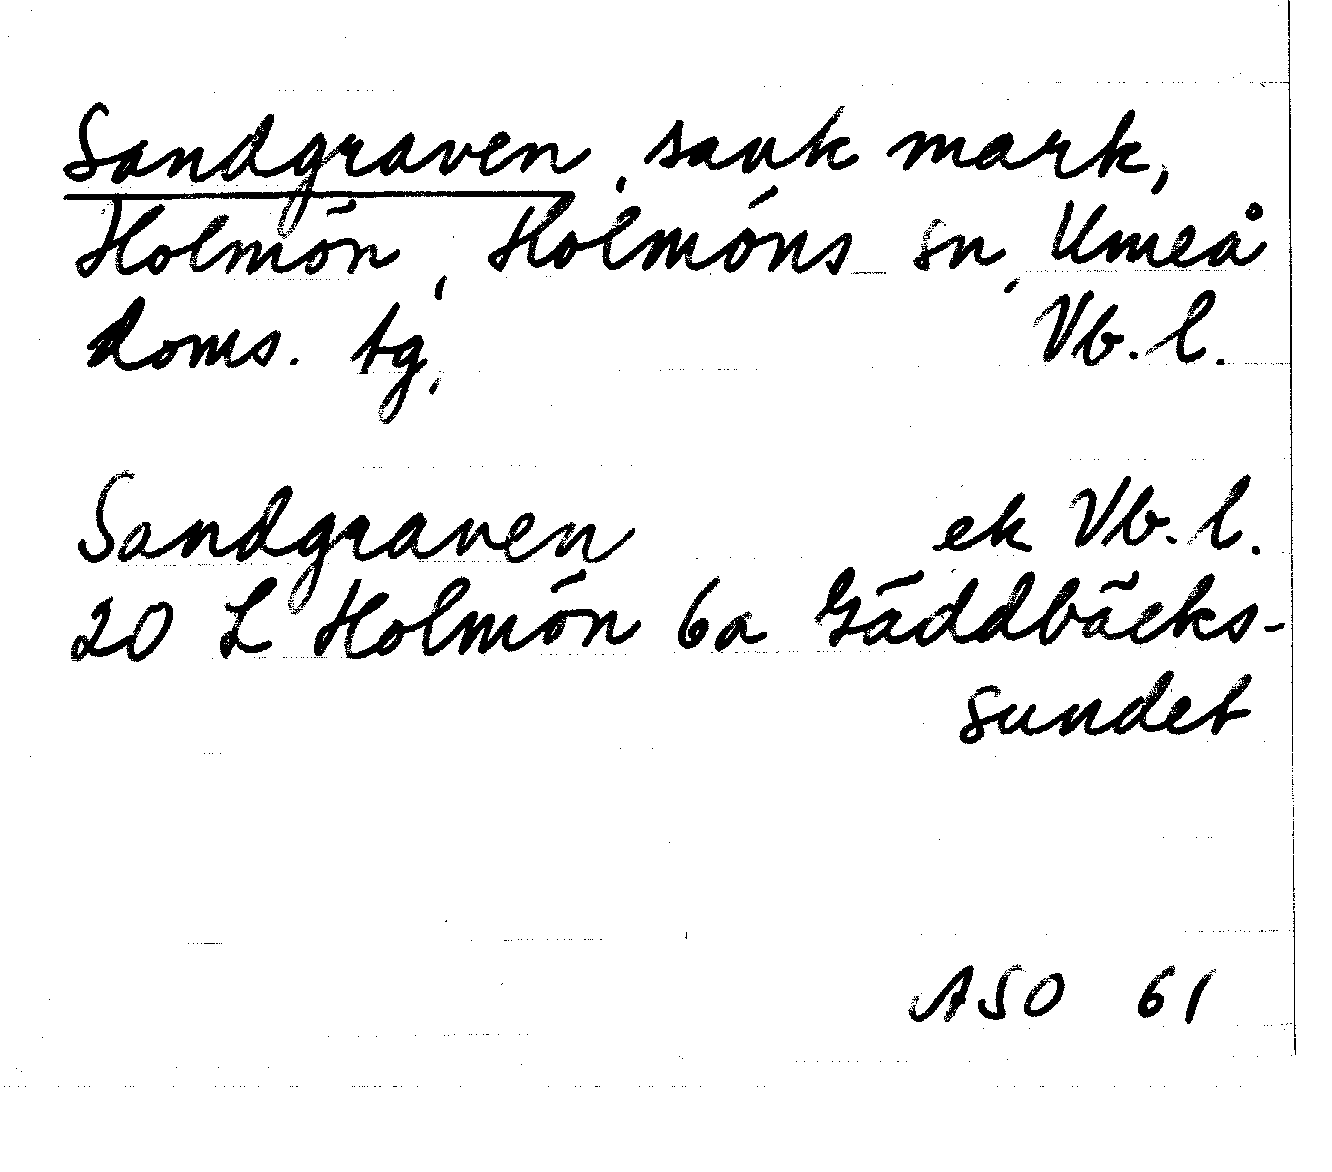 Sandgraven, sank mark,
Holmön, Holmöns sn, Umeå
doms. tg, Vb. l.
Sandgraven ek Vb. l.
20 L Holmön 6a Gäddbäcks-
sundet
ASO 61